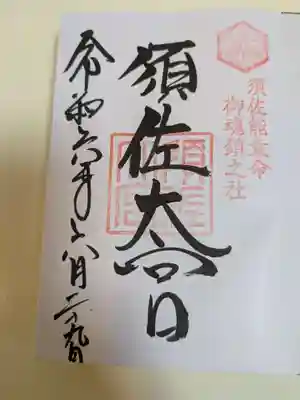 須佐能袁命
御魂鎮之社
須佐大宮
令和六年八月二十九日